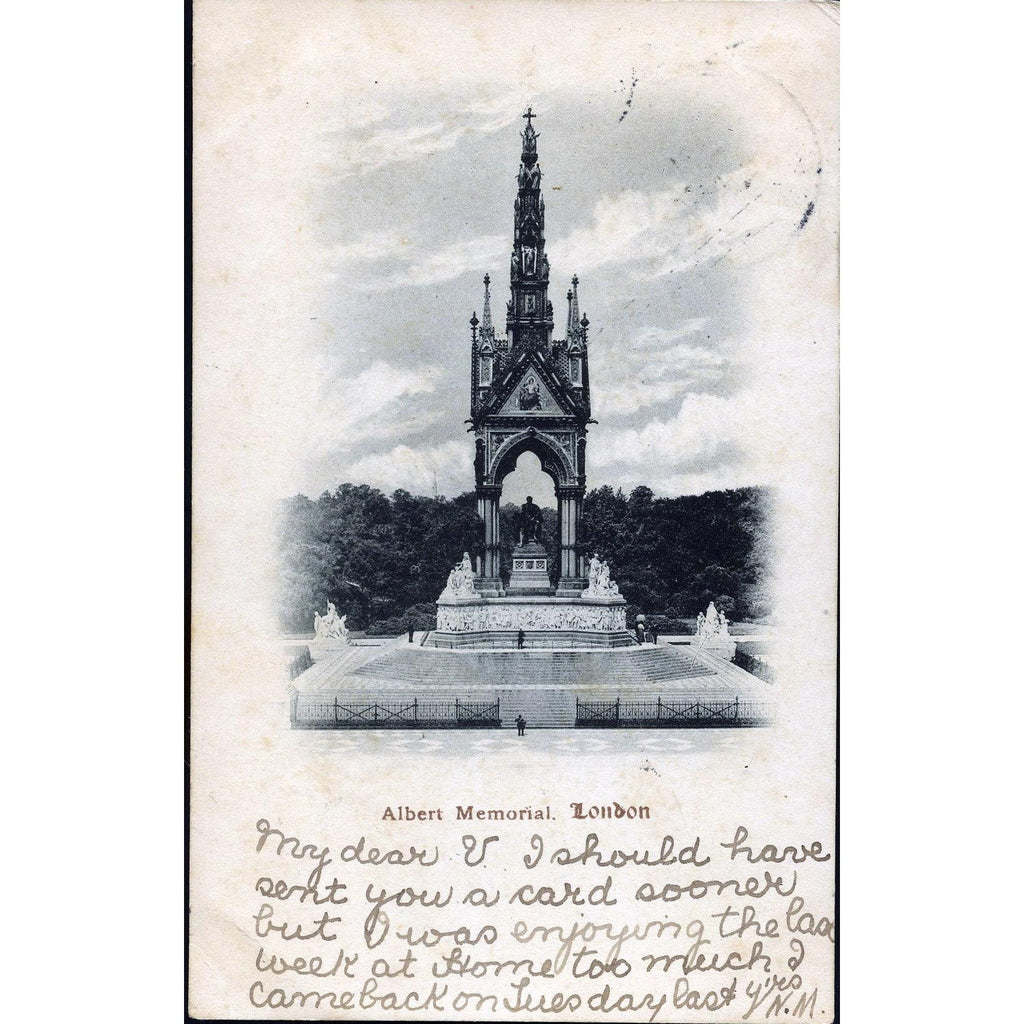 Albert Memorial. London
My dear V I should have
sent you a card sooner
but I was enjoying the las
week at Home too much I
came back on Tuesday last y'rs
N.M.